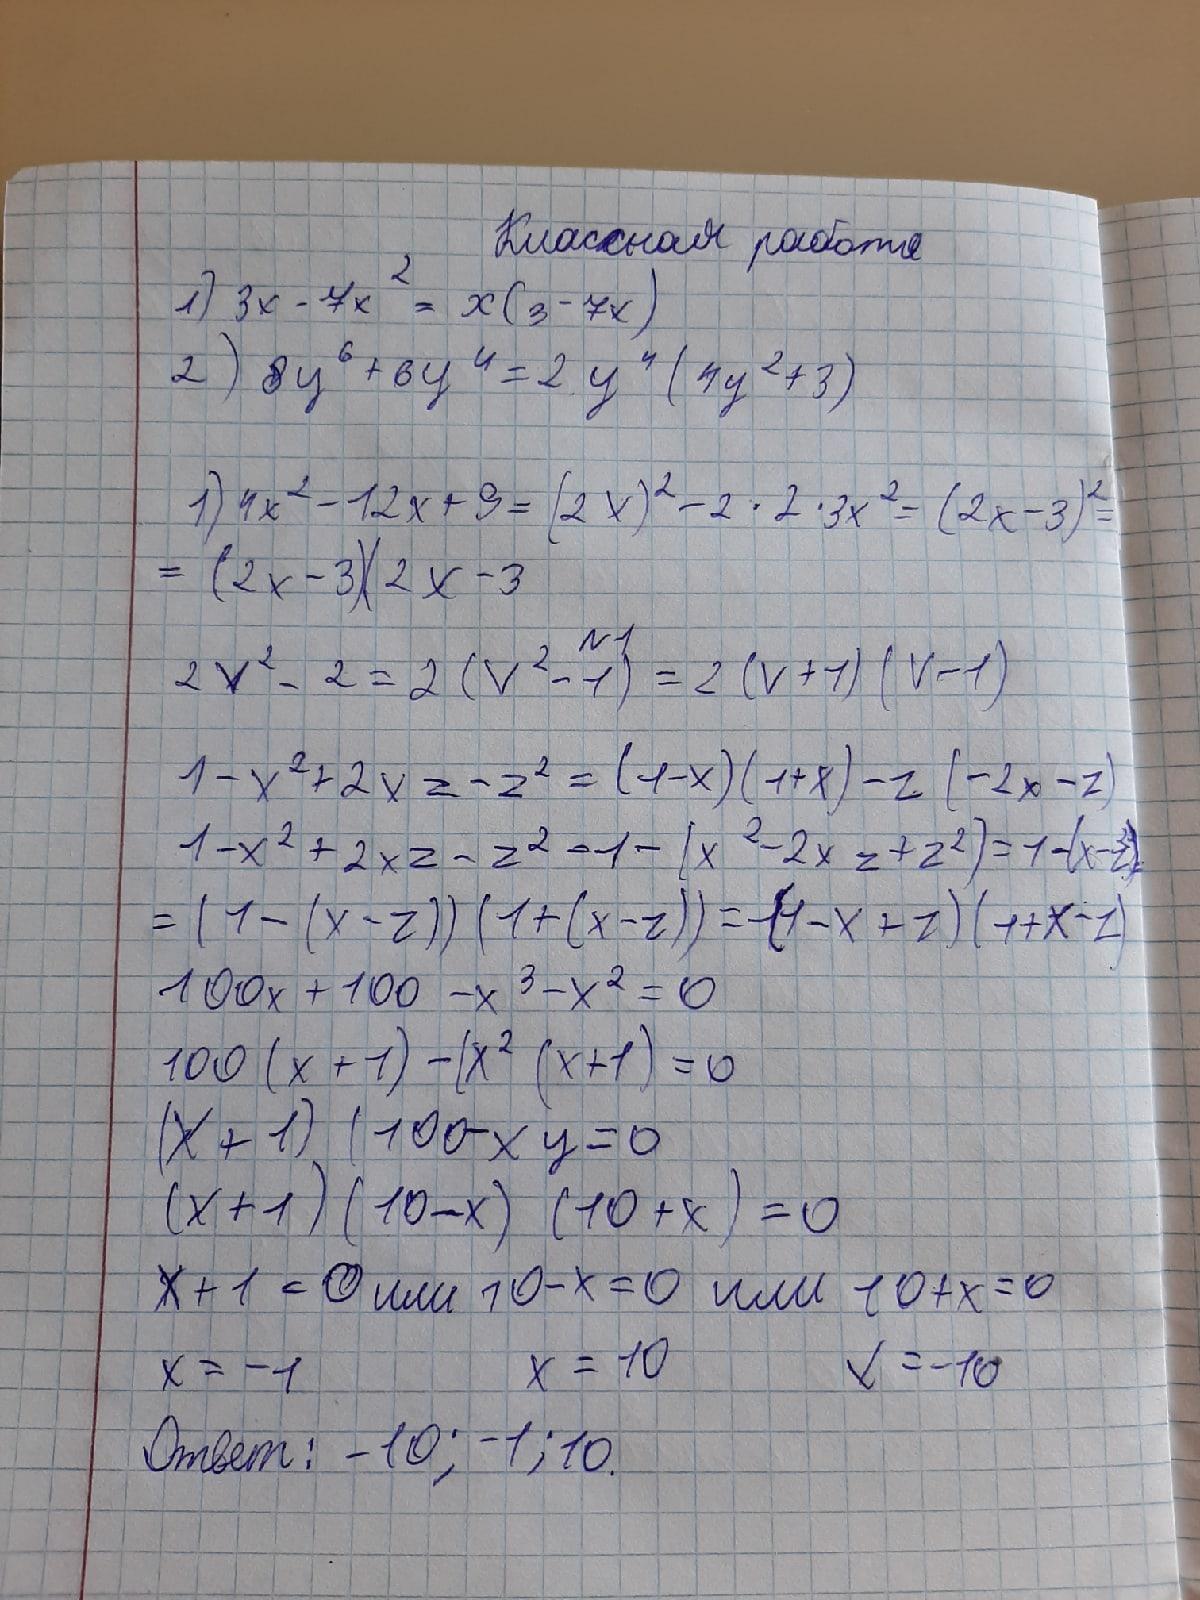 Классная работа
1) 3x - 7x² = x(3-7x)
2) 8y⁶ + 6y⁴ = 2y⁴(4y²+3)
1) 4x² - 12x + 9 = (2x)² - 2 · 2 · 3x² = (2x-3)² =
= (2x-3)(2x-3
N1
2v² - 2 = 2(v²-1) = 2(v+1)(v-1)
1-x²+2xz-z² = (1-x)(1+x)-z(-2x-z)
1-x²+2xz-z² = 1-(x²-2xz+z²) = 1-(x-z)²
= (1-(x-z))(1+(x-z)) = (1-x+z)(1+x-z)
100x+100-x³-x²=0
100(x+1)-(x²(x+1)=0
(x+1)(100-xy=0
(x+1)(10-x)(10+x)=0
x+1=0 или 10-x=0 или 10+x=0
x=-1 x=10 x=-10
Ответ: -10; -1; 10.